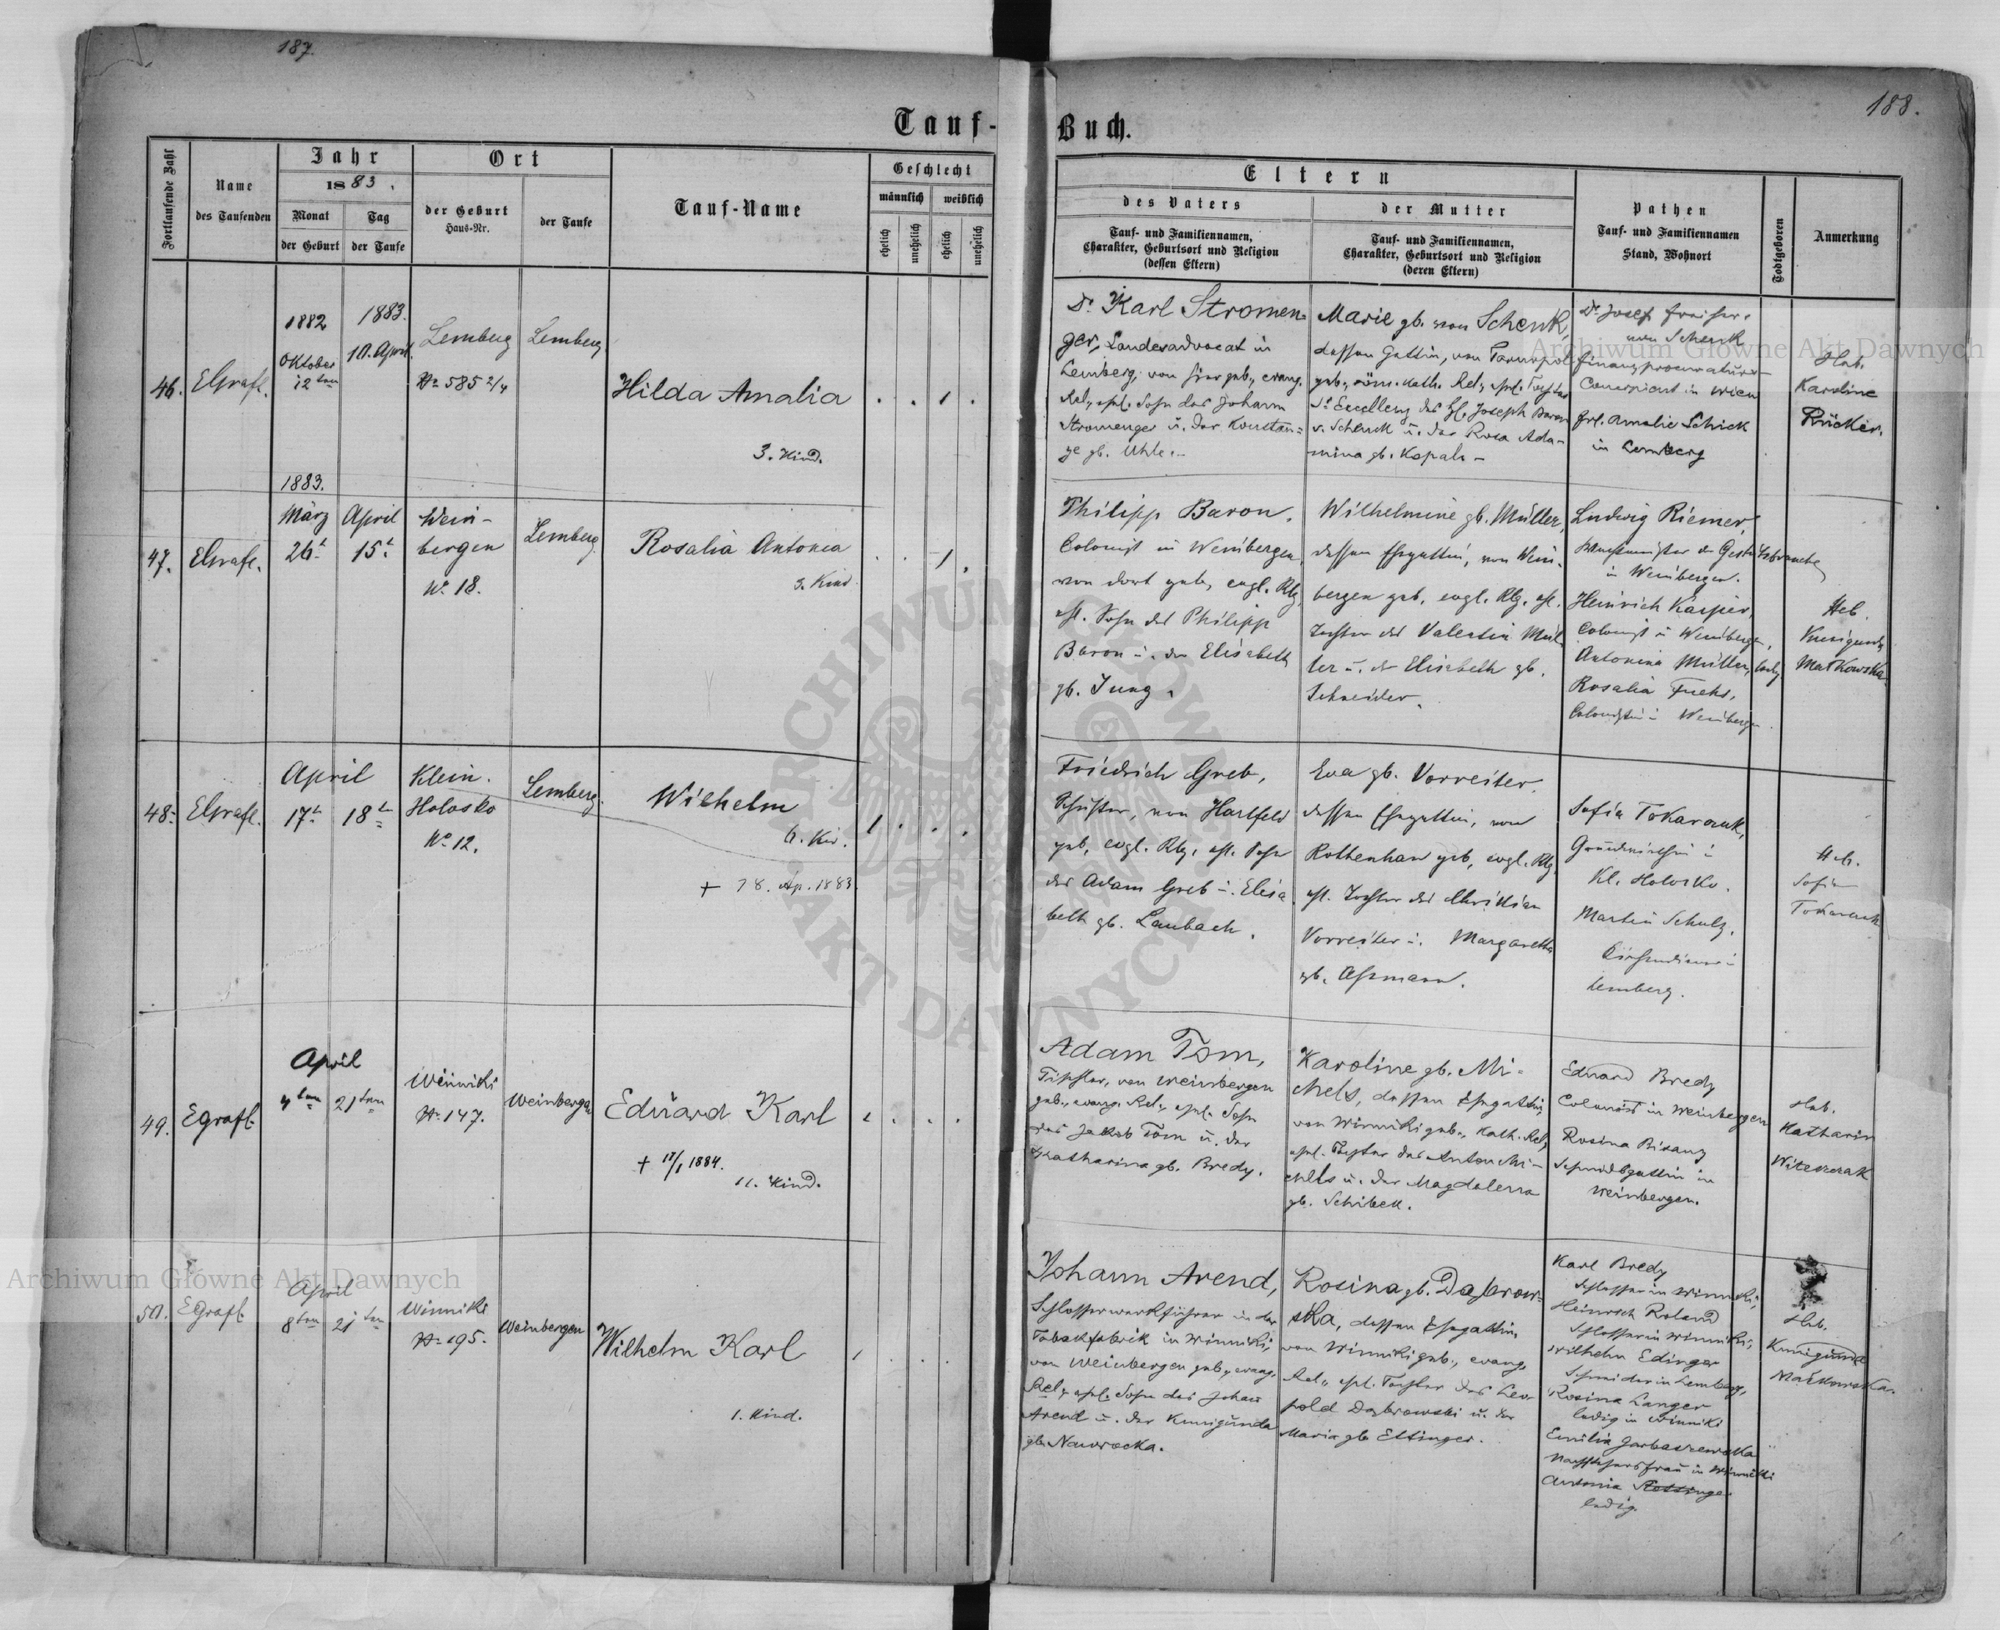 187.
188.
Tauf-
Buch.
Fortlaufende Zahl
Name
des Taufenden
Jahr
1883.
Monat
der Geburt
Tag
der Taufe
Ort
der Geburt
Haus-Nr.
der Taufe
Tauf-Name
Geschlecht
männlich
weiblich
ehelich
unehelich
ehelich
unehelich
Eltern
des Vaters
Tauf- und Familiennamen,
Charakter, Geburtsort und Religion
(dessen Eltern)
der Mutter
Tauf- und Familiennamen,
Charakter, Geburtsort und Religion
(deren Eltern)
Pathen
Tauf- und Familiennamen
Stand, Wohnort
Todtgeboren
Anmerkung
46.
Elgrafe.
1882
Oktober
12 ten
1883.
10. April
Lemberg
Nr 585 2/4
Lemberg
Hilda Amalia
3. Kind.
1
Dr. Karl Stromen-
ger, Landesadvocat in
Lemberg, von hier geb., evang.
Rel., ehel. Sohn des Johann
Stromenger u. der Konstan-
ze gb. Uhle.-
Marie gb. von Schenk,
dessen Gattin, von Tarnopol
geb., röm. kath. Rel., ehel. Tochter
Sr Excellenz des H. Joseph Baron
v. Schenk u. der Rosa Ada-
mina gb. Kopal. -
Dr Josef Freiherr
von Schenk
Finanzprocuraturs-
Concipient in Wien
Frl. Amalie Schick
in Lemberg
Heb.
Karoline
Rücker.
47.
Elgrafe.
1883.
März
26t
April
15t
Wein-
bergen
No 18.
Lemberg
Rosalia Antonia
3. Kind
1
Philipp Baron,
Colonist in Weinbergen,
von dort geb., evgl. Rlg.
ehl. Sohn des Philipp
Baron u. der Elisabeth
gb. Jung.
Wilhelmine gb. Müller,
dessen Ehegattin, von Wein-
bergen geb., evgl. Rlg. ehl.
Tochter des Valentin Mül-
ler u. der Elisabeth gb.
Schneider.
Ludwig Riemer
in Weinbergen.
Heinrich Kasper,
Colonist in Weinbergen,
Antonina Müller, ledig
Rosalia Fuchs,
Colonistin in Weinbergen.
Heb.
Kunigunde
Matkowska
48.
Elgrafe.
April
17t
18t
Klein.
Holosko
No 12.
Lemberg.
Wilhelm
6. Kin.
+ 28. Ap. 1883
1
Friedrich Greb,
Schuster, von Hartfeld
geb., evgl. Rlg., ehl. Sohn
des Adam Greb u. Elisa
beth gb. Laubach.
Eva gb. Vorreiter.
dessen Ehegattin, von
Rottenhan geb., evgl. Rlg.
ehl. Tochter des Christian
Vorreiter u. Margaretha
gb. Assmann.
Sofia Tokarczuk,
Grundwirthin in
Kl. Holosko.
Martin Schulz,
Kirchendiener in
Lemberg.
Heb.
Sofia
Tokarczuk
49.
Egrafl.
April
4 ten
21 ten
Winniki
Nr 147.
Weinbergen
Eduard Karl
+ 17/1 1884.
11. Kind.
1
Adam Tom,
Tischler, von Weinbergen
geb., evang. Rel., ehel. Sohn
des Jakob Tom u. der
Katharina gb. Bredy.
Karoline gb. Mi-
chels, dessen Ehegattin,
von Winniki geb., kath. Rel.,
ehel. Tochter des Anton Mi-
chels u. der Magdalena
gb. Schibek.
Eduard Bredy
Colonist in Weinbergen
Rosina Bisanz
Schmidsgattin in
Weinbergen.
Heb.
Katharina
Witeszczak
50.
Egrafl.
April
8 ten
21 ten
Winniki
Nr 195.
Weinbergen
Wilhelm Karl
1. Kind.
1
Johann Arend,
Schlosserwerkführer in der
Tabackfabrik in Winniki,
von Weinbergen geb., evang.
Rel., ehel. Sohn des Johann
Arend u. der Kunigunda
gb. Nawrocka.
Rosina gb. Dabrow-
ska, dessen Ehegattin,
von Winniki geb., evang.
Rel., ehl. Tochter des Leo-
pold Dabrowski u. der
Maria gb. Ettinger.
Karl Bredy
Schlosser in Winniki,
Heinrich Roland
Schlosser in Winniki,
Wilhelm Edinger
Schneider in Lemberg,
Rosina Langer
ledig in Winniki
Emilia Garbaczewska
in Winniki
Antonia
ledig.
Heb.
Kunigunde
Matkowska.
Archiwum Główne Akt Dawnych
Archiwum Główne Akt Dawnych
ARCHIWUM GŁÓWNE
AKT DAWNYCH